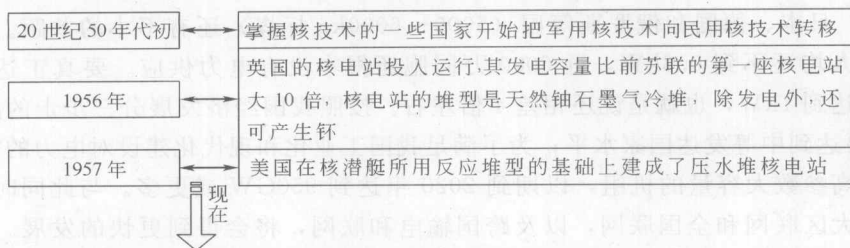 20世纪50年代初
掌握核技术的一些国家开始把军用核技术向民用核技术转移
1956年
英国的核电站投入运行,其发电容量比前苏联的第一座核电站
大10倍,核电站的堆型是天然铀石墨气冷堆,除发电外,还
可产生钚
1957年
美国在核潜艇所用反应堆型的基础上建成了压水堆核电站
现在